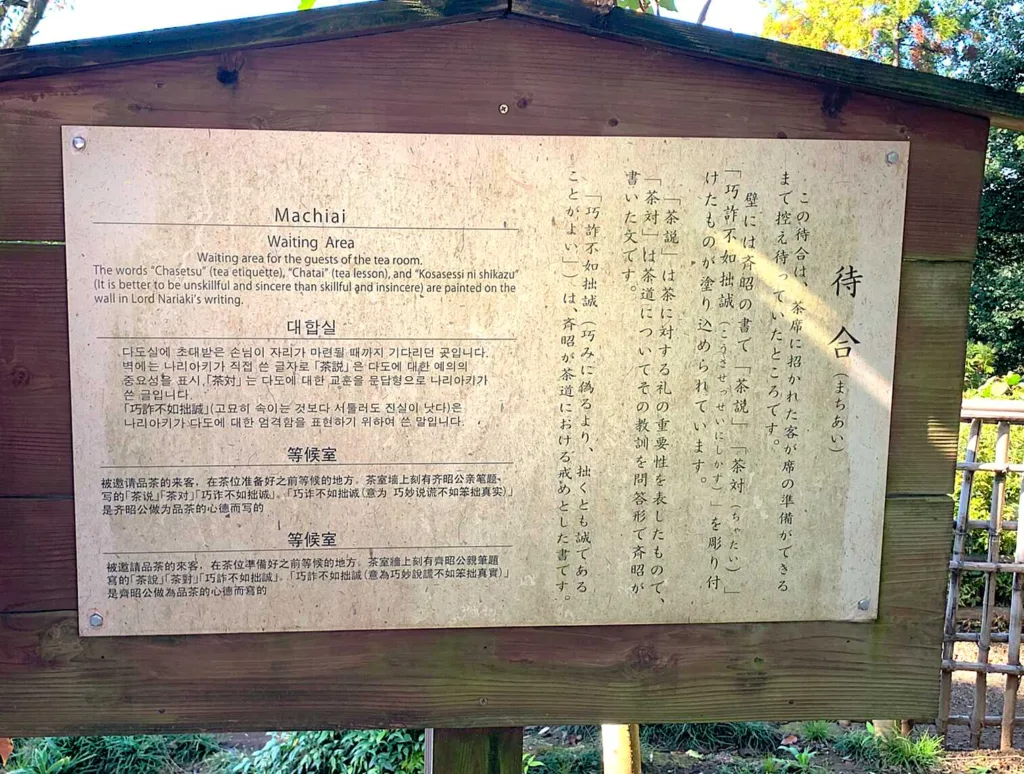 待合（まちあい）
この待合は、茶席に招かれた客が席の準備ができる
まで控え待っていたところです。
壁には斉昭の書で「茶説」「茶対（ちゃたい）」
「巧詐不如拙誠（こうさせっせいにしかず）」を彫り付
けたものが塗り込められています。
「茶説」は茶に対する礼の重要性を表したもので、
「茶対」は茶道についてその教訓を問答形で斉昭が
書いた文です。
「巧詐不如拙誠（巧みに偽るより、拙くとも誠である
ことがよい」）は、斉昭が茶道における戒めとした書です。
Machiai
Waiting Area
Waiting area for the guests of the tea room.
The words "Chasetsu" (tea etiquette), "Chatai" (tea lesson), and "Kosasessi ni shikazu"
(It is better to be unskillful and sincere than skillful and insincere) are painted on the
wall in Lord Nariaki's writing.
대합실
다도실에 초대받은 손님이 자리가 마련될 때까지 기다리던 곳입니다.
벽에는 나리아키가 직접 쓴 글자로「茶説」은 다도에 대한 예의의
중요성를 표시,「茶対」는 다도에 대한 교훈을 문답형으로 나리아키가
쓴 글입니다.
「巧詐不如拙誠」(고묘히 속이는 것보다 서툴러도 진실이 낫다)은
나리아키가 다도에 대한 엄격함을 표현하기 위하여 쓴 말입니다.
等候室
被邀请品茶的来客，在茶位准备好之前等候的地方，茶室墙上刻有齐昭公亲笔题
写的「茶说」「茶对」「巧诈不如拙诚」。「巧诈不如拙诚(意为 巧妙说谎不如笨拙真实)」
是齐昭公做为品茶的心德而写的
等候室
被邀請品茶的來客，在茶位準備好之前等候的地方，茶室牆上刻有齊昭公親筆題
寫的「茶說」「茶對」「巧詐不如拙誠」，「巧詐不如拙誠(意為巧妙說謊不如笨拙真實)」
是齊昭公做為品茶的心德而寫的